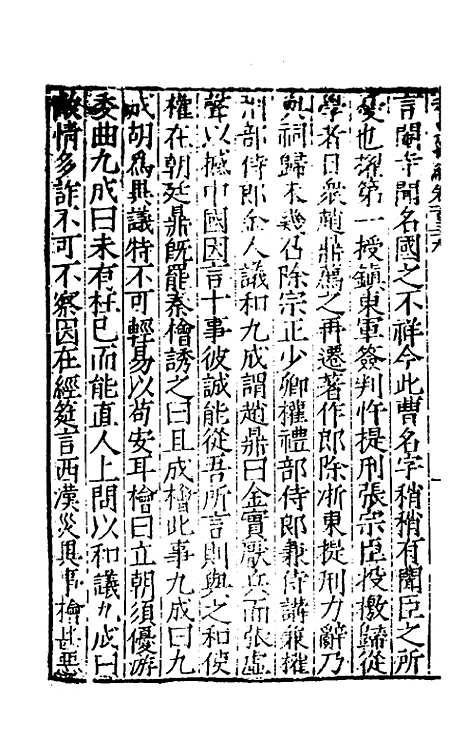 言閹寺聞名國之不祥今此曹名字稍稍有聞臣之所
憂也擢第一授鎮東軍簽判忤提刑張宗臣投檄歸從
學者日衆趙鼎薦之再遷著作郎除浙東提刑力辭乃
與祠歸未幾召除宗正少卿權禮部侍郎兼侍講兼權
刑部侍郎金人議和九成謂趙鼎曰金實厭兵而張虛
聲以撼中國因言十事彼誠能從吾所言則與之和使
權在朝廷鼎既罷秦檜誘之曰且成檜此事九成曰九
成胡爲異議特不可輕易以苟安耳檜曰立朝須優游
委曲九成曰未有枉已而能直人上問以和議九成曰
敵情多詐不可不察因在經筵言西漢災異事檜甚惡